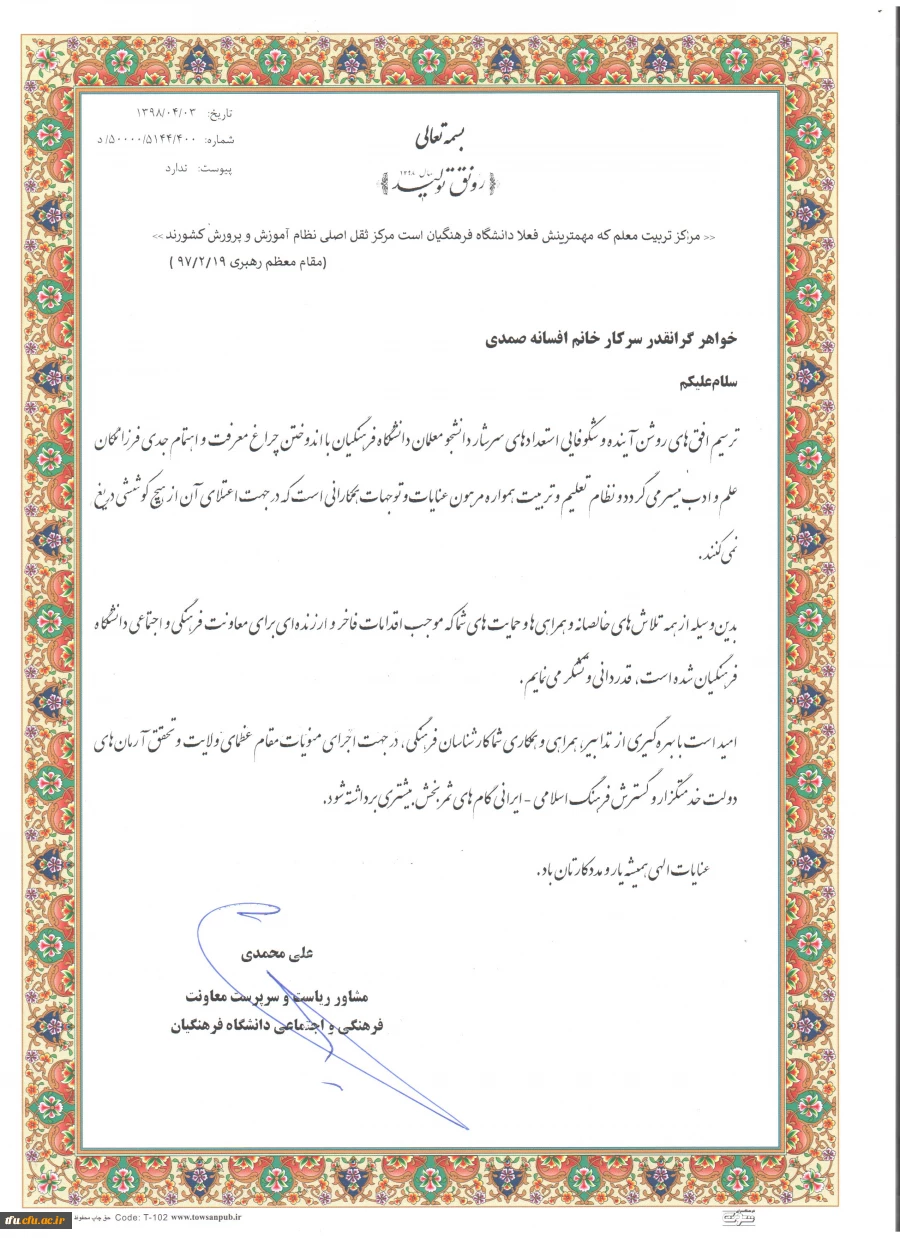 تاریخ: ۱۳۹۸/۰۴/۰۳
شماره: ۵۰۰۰۰/۵۱۴۴/۴۰۰/د
پیوست: ندارد
بسمه تعالی
سال ۱۳۹۸
رونق تولید
<< مرکز تربیت معلم که مهمترینش فعلا دانشگاه فرهنگیان است مرکز ثقل اصلی نظام آموزش و پرورش کشورند>>
(مقام معظم رهبری ۹۷/۲/۱۹ )
خواهر گرانقدر سرکار خانم افسانه صمدی
سلام‌علیکم
ترسیم افق‌های روشن آینده و شکوفایی استعدادهای سرشار دانشجو معلمان دانشگاه فرهنگیان با اندوختن چراغ معرفت و اهتمام جدی فرزانگان
علم و ادب میسر می گردد و نظام تعلیم و تربیت همواره مرهون عنایات و توجهات همکارانی است که در جهت اعتلای آن از هیچ کوششی دریغ
نمی کنند.
بدین وسیله از همه تلاش های خالصانه و همراهی ها و حمایت های شما که موجب اقدامات فاخر و ارزنده ای برای معاونت فرهنگی و اجتماعی دانشگاه
فرهنگیان شده است، قدردانی و تشکر می نمایم.
امید است با بهره گیری از تدابیر، همراهی و همکاری شما کارشناسان فرهنگی، در جهت اجرای منویات مقام عظمای ولایت و تحقق آرمان های
دولت خدمتگزار و گسترش فرهنگ اسلامی - ایرانی گام های ثمربخش بیشتری برداشته شود.
عنایات الهی همیشه یار و مددکارتان باد.
علی محمدی
مشاور ریاست و سرپرست معاونت
فرهنگی و اجتماعی دانشگاه فرهنگیان
حق چاپ محفوظ Code: T-102 www.towsanpub.ir
tfu.cfu.ac.ir